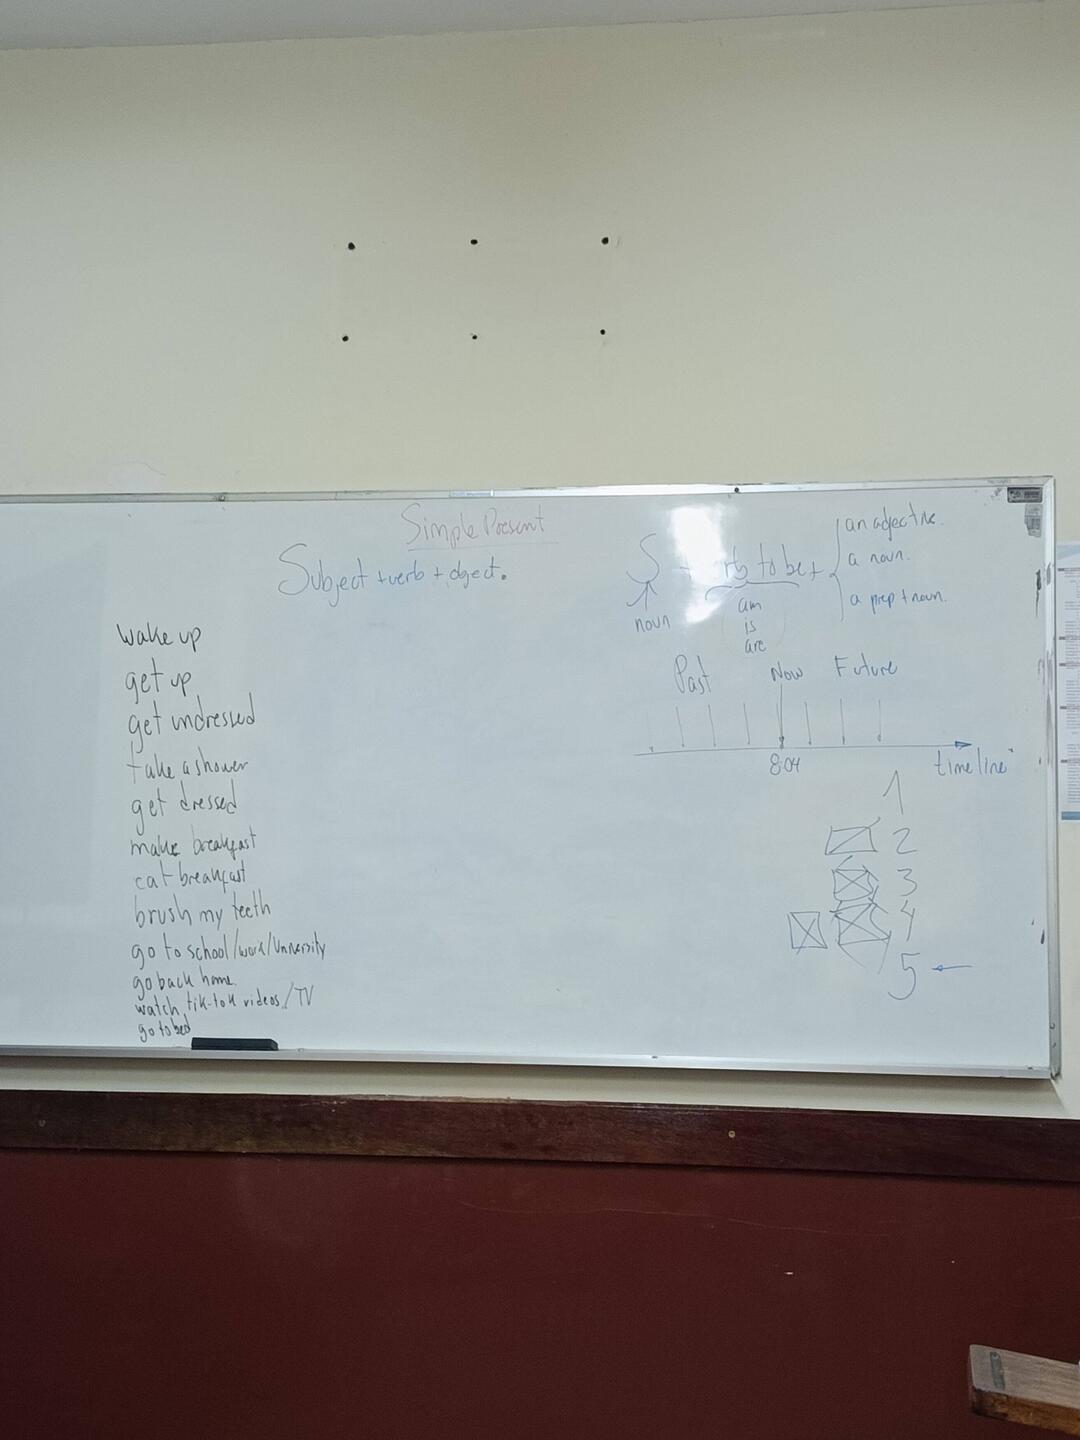 Simple Present
Subject + verb + object.
wake up
get up
get undressed
take a shower
get dressed
make breakfast
eat breakfast
brush my teeth
go to school/work/University
go back home.
watch tik-tok videos/TV
go to bed
S + verb to be +
an adjective.
a noun.
a prep + noun.
noun
am
is
are
Past Now Future
8:04
timeline
1
2
3
4
5